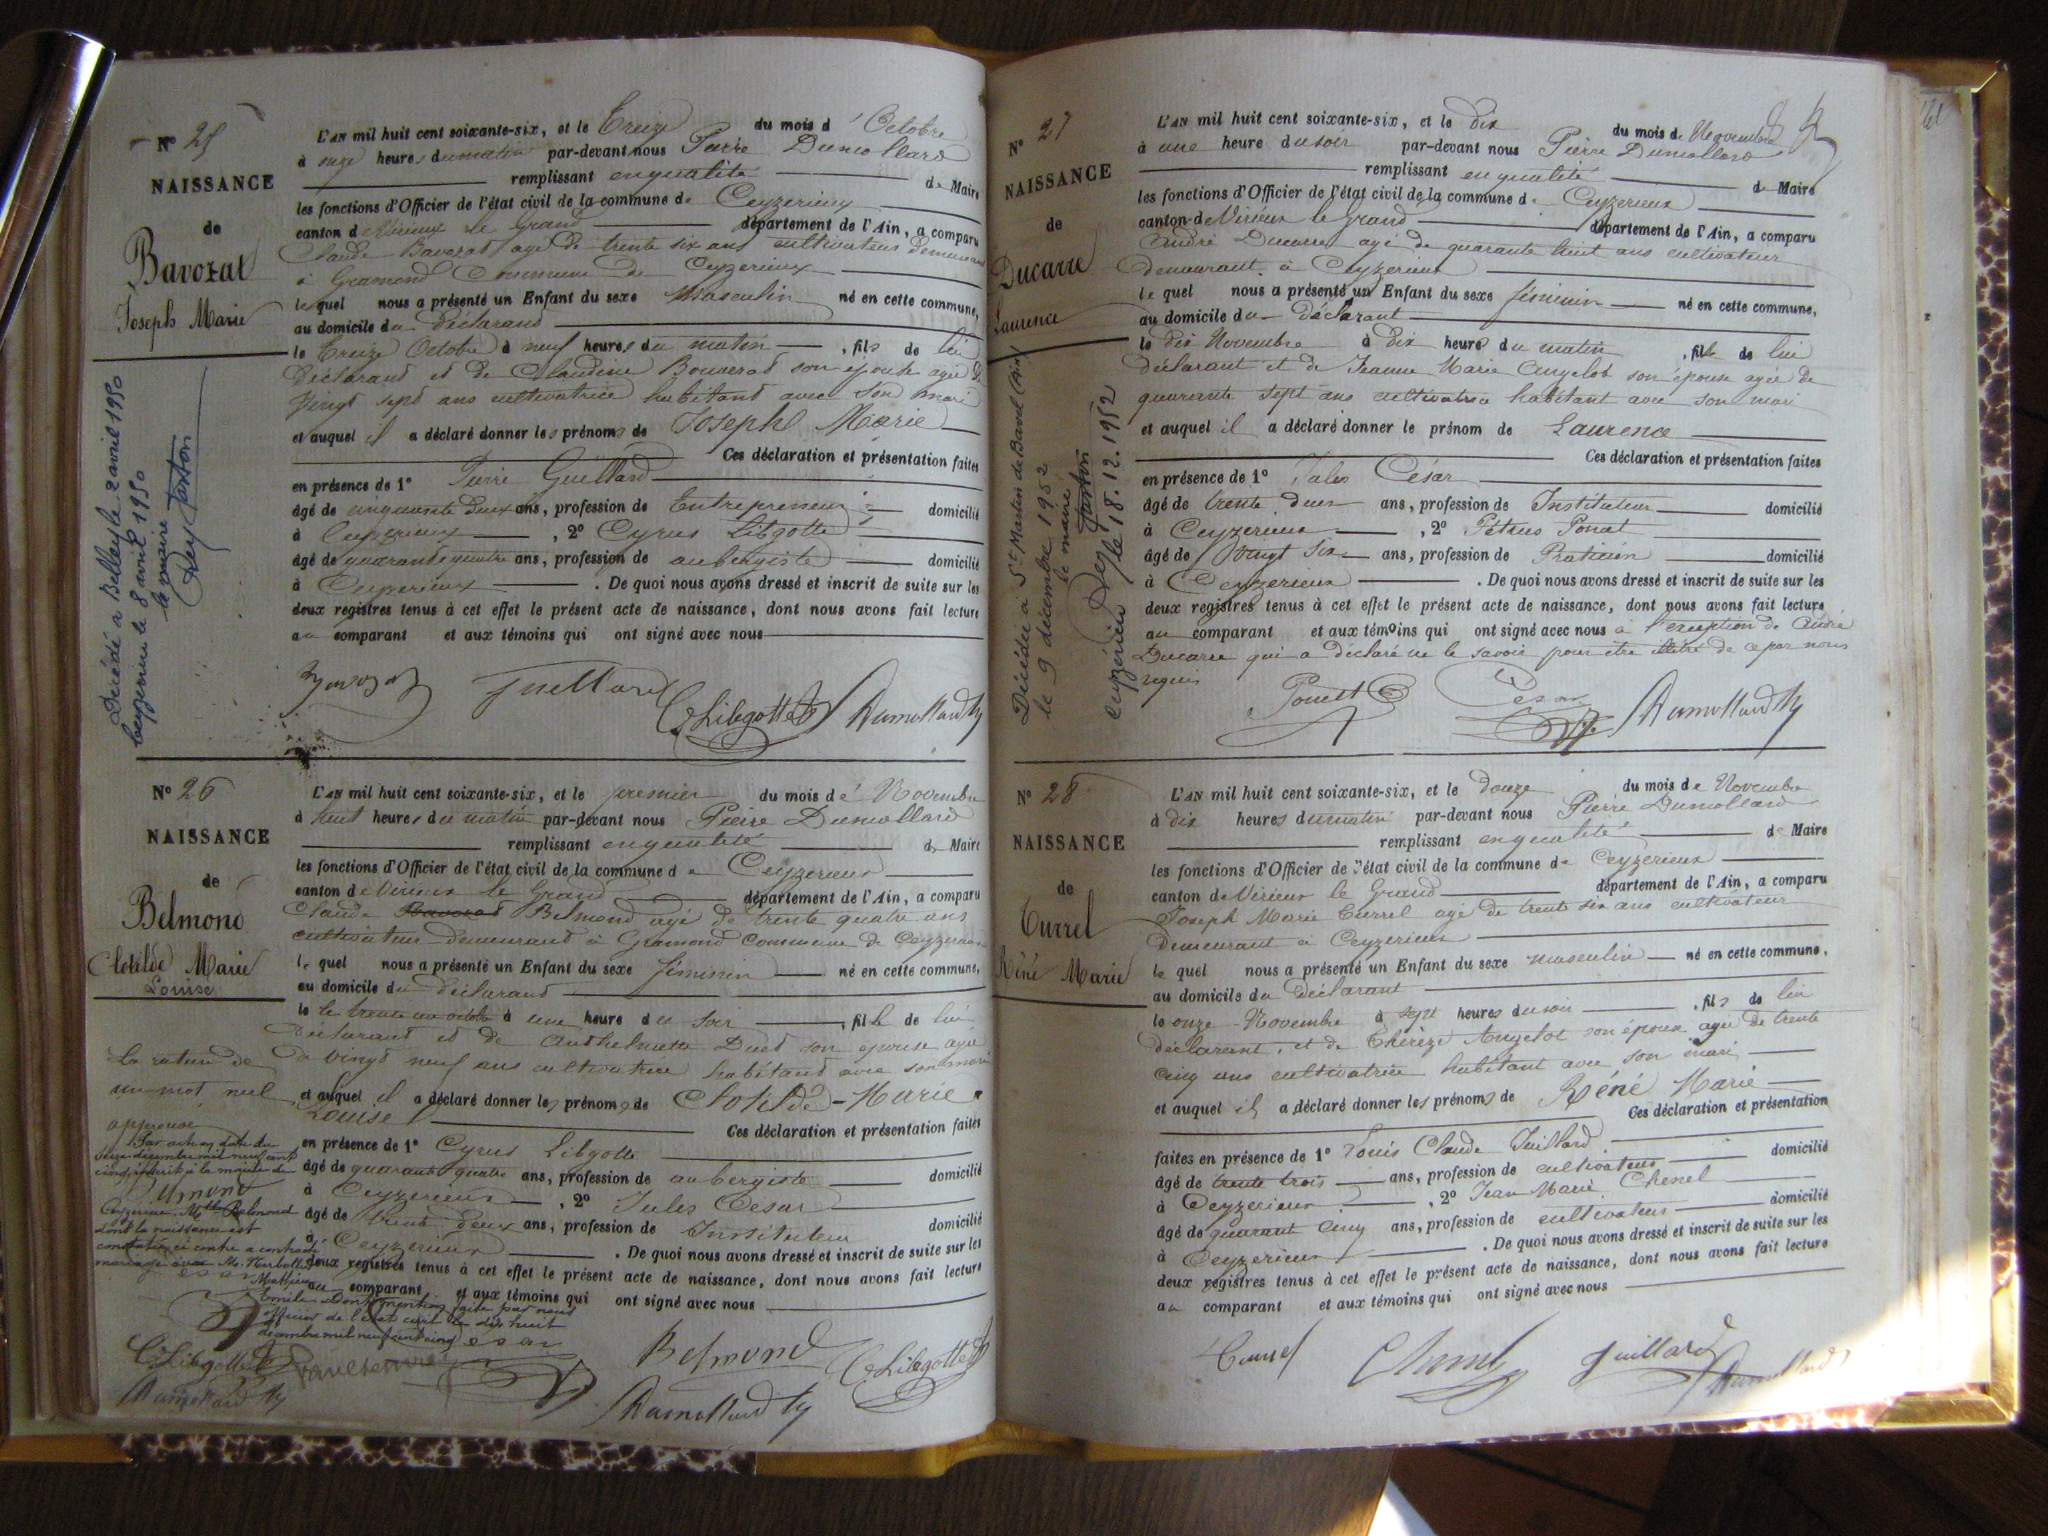 Nº 25
NAISSANCE
de
Bavozat
Joseph Marie
Décédé à Belley le 2 avril 1950
Ceyzérieu le 8 avril 1950
le maire
L'AN mil huit cent soixante-six, et le Treize du mois d'Octobre
à onze heures du matin par-devant nous Pierre Dumollard
remplissant en qualité de Maire
les fonctions d'Officier de l'état civil de la commune de Ceyzerieux
canton de Virieux le Grand département de l'Ain, a comparu
Claude Bavozat agé de trente six ans cultivateur demeurant
à Gramond Commune de Ceyzerieux
lequel nous a présenté un Enfant du sexe Masculin né en cette commune,
au domicile du déclarand
le Treize Octobre à neuf heures du matin, fils de lui
déclarand et de Claudine Bouverat son épouse agée de
Vingt sept ans cultivatrice habitant avec son mari
et auquel il a déclaré donner les prénoms de Joseph Marie
Ces déclaration et présentation faites
en présence de 1º Pierre Guillard
âgé de cinquante deux ans, profession de Entrepreneur domicilié
à Ceyzerieux, 2º Cyrus Libgotte
âgé de quarande quatre ans, profession de aubergiste domicilié
à Ceyzerieux. De quoi nous avons dressé et inscrit de suite sur les
deux registres tenus à cet effet le présent acte de naissance, dont nous avons fait lecture
au comparant et aux témoins qui ont signé avec nous
Bavozat Guillard C. Libgotte Dumollard
Nº 26
NAISSANCE
de
Belmond
Clotilde Marie
Louise
La rature de
un mot nul
approuvé
L'AN mil huit cent soixante-six, et le premier du mois de Novembre
à huit heures du matin par-devant nous Pierre Dumollard
remplissant en qualité de Maire
les fonctions d'Officier de l'état civil de la commune de Ceyzerieux
canton de Virieux le Grand département de l'Ain, a comparu
Claude Bavozat Belmond agé de trente quatre ans
cultivateur demeurand à Gramond Commune de Ceyzerieux
lequel nous a présenté un Enfant du sexe féminin né en cette commune,
au domicile du déclarand
le le trente un octobre à une heure du soir, fille de lui
déclarand et de Anthelmette Duet son épouse agée
de vingt neuf ans cultivatrice habitand avec son mari
et auquel il a déclaré donner les prénoms de Clotilde-Marie
Louise
Ces déclaration et présentation faites
en présence de 1º Cyrus Libgotte
âgé de quarante quatre ans, profession de aubergiste domicilié
à Ceyzerieux, 2º Jules Cesar
âgé de trente deux ans, profession de Instituteur domicilié
à Ceyzerieux. De quoi nous avons dressé et inscrit de suite sur les
deux registres tenus à cet effet le présent acte de naissance, dont nous avons fait lecture
au comparant et aux témoins qui ont signé avec nous
Par acte en date du
seize décembre mil neuf cent
cinq, inscrit à la mairie de
Ceyzerieu, Mlle Belmond
dont la naissance est
constatée ci contre a contracté
mariage avec
Mathieu
Emile. Dont mention faite par nous
officier de l'état civil le dix huit
décembre mil neuf cent cinq
Belmond C. Libgotte
Cesar
Dumollard
Nº 27
NAISSANCE
de
Ducarre
Laurence
Décédée à St Martin de Bavel (Ain)
le 9 décembre 1952
Ceyzérieu le 18.12.1952
le maire
L'AN mil huit cent soixante-six, et le dix du mois de Novembre
à une heure du soir par-devant nous Pierre Dumollard
remplissant en qualité de Maire
les fonctions d'Officier de l'état civil de la commune de Ceyzerieux
canton de Virieux le grand département de l'Ain, a comparu
André Ducarre agé de quarante huit ans cultivateur
demeurant à Ceyzerieux
lequel nous a présenté un Enfant du sexe féminin né en cette commune,
au domicile du déclarant
le dix Novembre à dix heures du matin, fille de lui
déclarant et de Jeanne Marie Angelot son épouse agée de
quarante sept ans cultivatrice habitant avec son mari
et auquel il a déclaré donner le prénom de Laurence
Ces déclaration et présentation faites
en présence de 1º Jules César
âgé de trente deux ans, profession de Instituteur domicilié
à Ceyzerieux, 2º Pétrus Poncet
âgé de Vingt six ans, profession de Praticien domicilié
à Ceyzerieux. De quoi nous avons dressé et inscrit de suite sur les
deux registres tenus à cet effet le présent acte de naissance, dont nous avons fait lecture
au comparant et aux témoins qui ont signé avec nous à l'exception de André
Ducarre qui a déclaré ne le savoir pour être illettré de ce par nous
requis
Poncet Cesar Dumollard
Nº 28
NAISSANCE
de
Currel
Réné Marie
L'AN mil huit cent soixante-six, et le douze du mois de Novembre
à dix heures du matin par-devant nous Pierre Dumollard
remplissant en qualité de Maire
les fonctions d'Officier de l'état civil de la commune de Ceyzerieux
canton de Virieux le Grand département de l'Ain, a comparu
Joseph Marie Currel agé de trente six ans cultivateur
demeurant à Ceyzerieux
lequel nous a présenté un Enfant du sexe masculin né en cette commune,
au domicile du déclarant
le onze Novembre à sept heures du soir, fils de lui
déclarant, et de Thérèze Angelot son épouse agée de trente
cinq ans cultivatrice habitant avec son mari
et auquel il a déclaré donner les prénoms de Réné Marie
Ces déclaration et présentation
faites en présence de 1º Louis Claude Juillard domicilié
âgé de trente trois ans, profession de cultivateur
à Ceyzerieux, 2º Jean Marie Chenel
âgé de quarant cinq ans, profession de cultivateur domicilié
à Ceyzerieux. De quoi nous avons dressé et inscrit de suite sur les
deux registres tenus à cet effet le présent acte de naissance, dont nous avons fait lecture
au comparant et aux témoins qui ont signé avec nous
Currel Chenel Juillard Dumollard